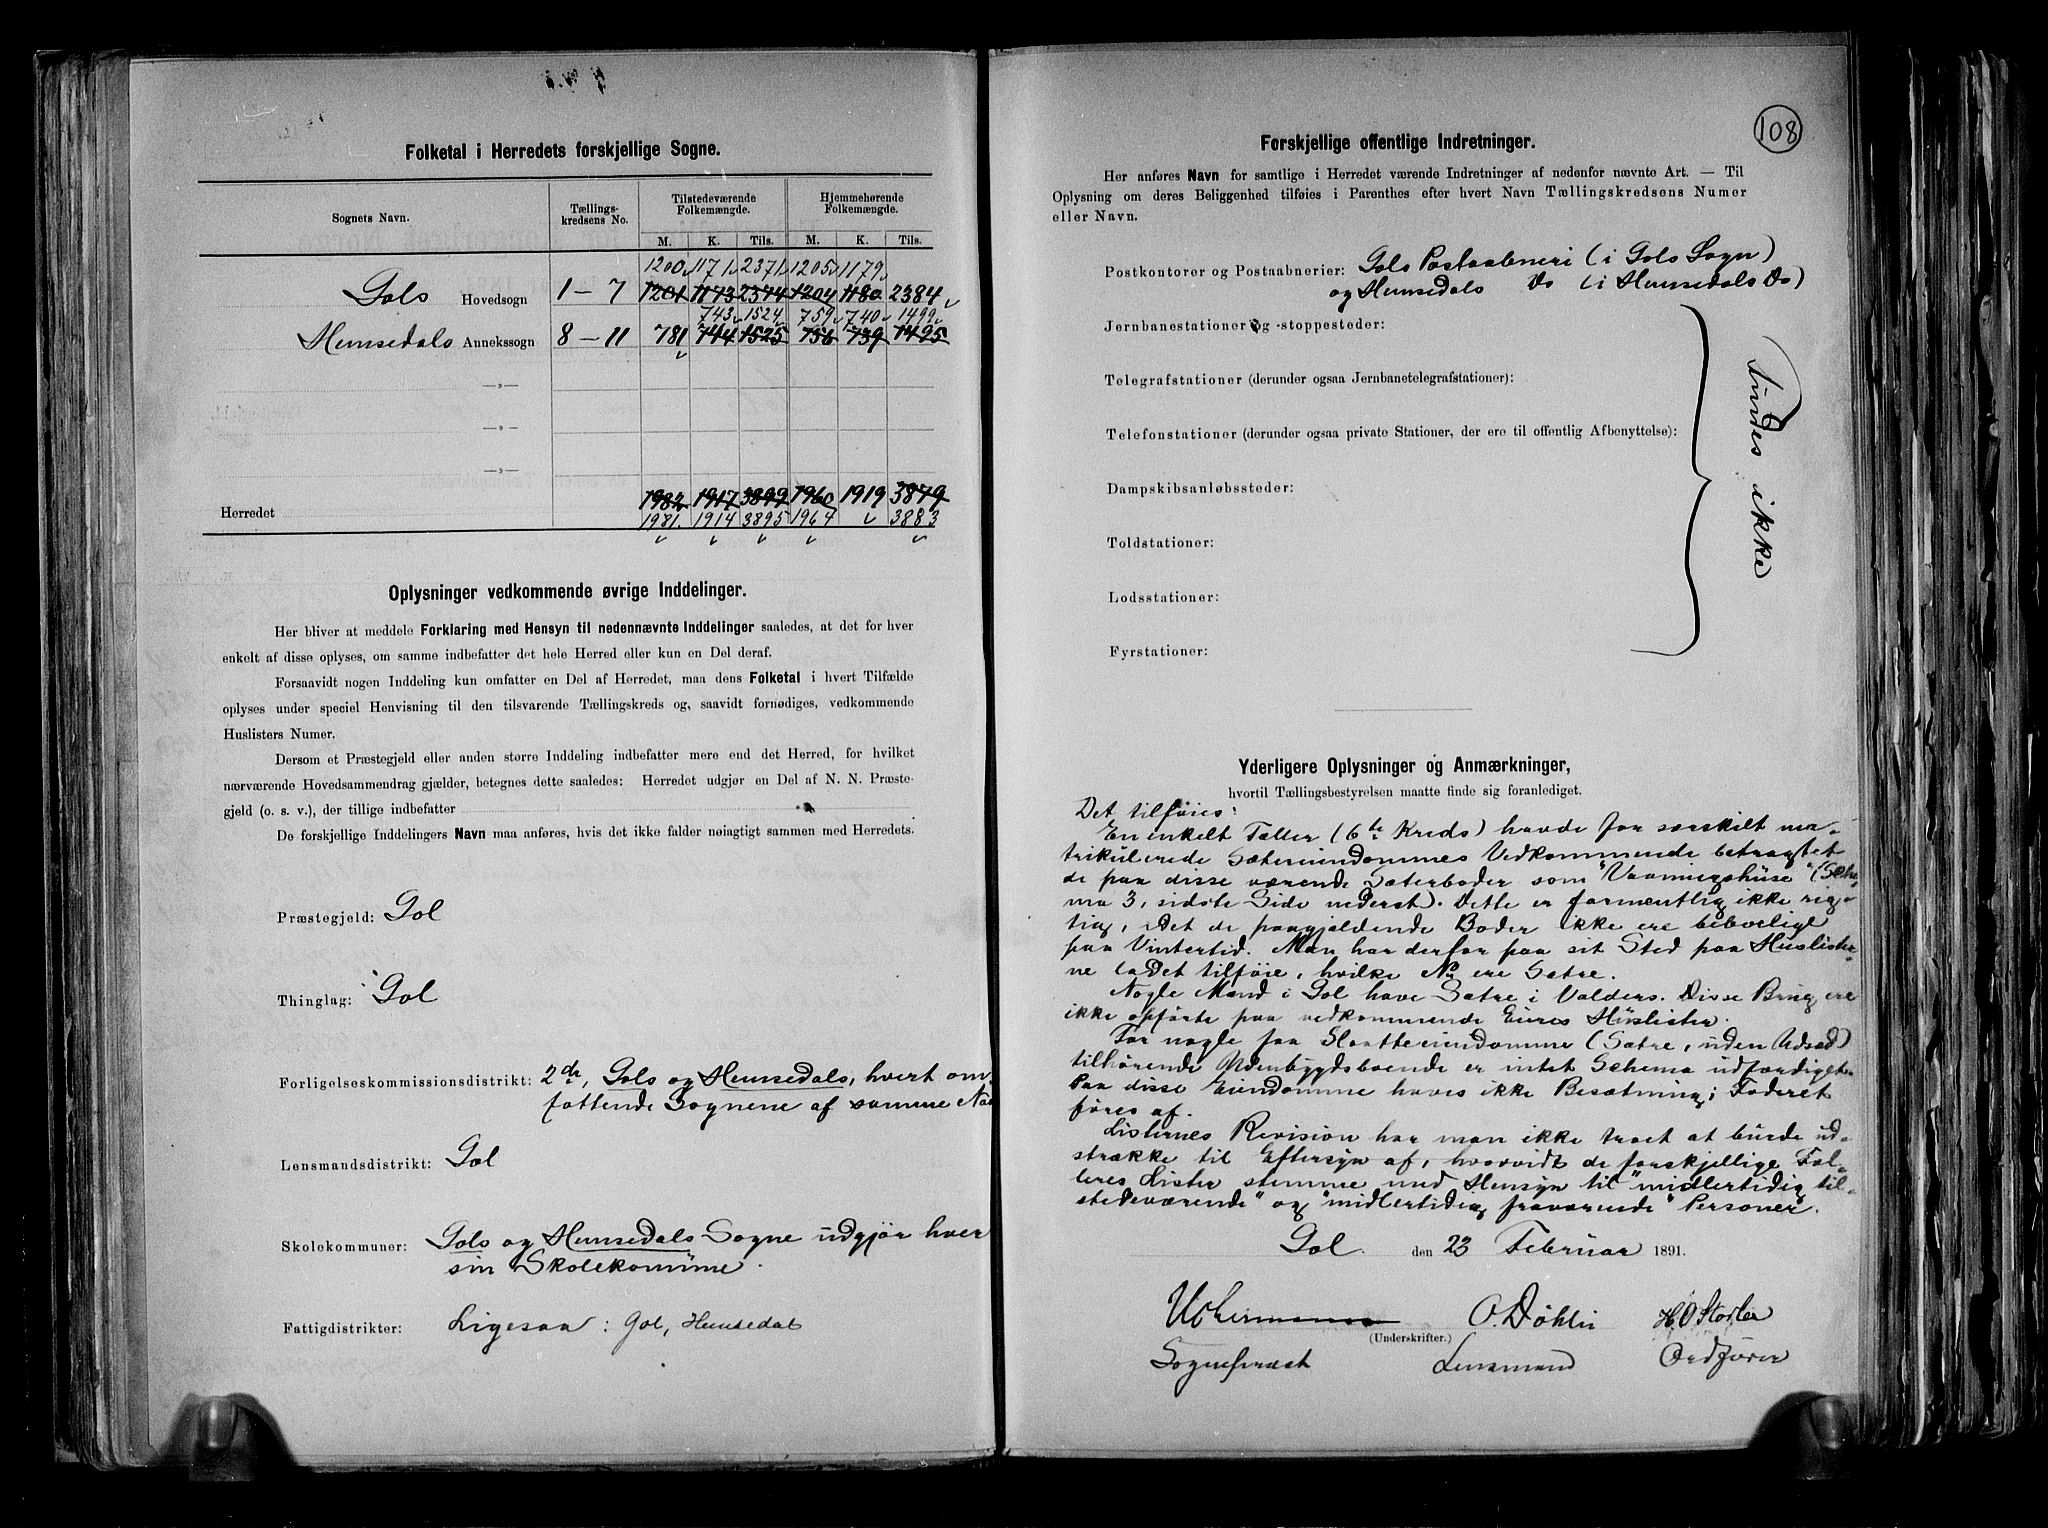 Folketal i Herredets forskjellige Sogne.
Sognets Navn. Tællings-kredsens No. Tilstedeværende Folkemængde. Hjemmehørende Folkemængde.
M. K. Tils. M. K. Tils.
1200 1171 2371 1205 1179
Gols Hovedsogn 1-7 1201 1173 2374 1204 1180 2384
743 1524 759 740 1499
Hemsedals Annekssogn 8-11 781 744 1525 756 739 1495
-»-
-»-
-»-
Herredet 1982 1917 3899 1960 1919 3879
1981. 1914 3895 1964 3883
Oplysninger vedkommende øvrige Inddelinger.
Her bliver at meddele Forklaring med Hensyn til nedennævnte Inddelinger saaledes, at det for hver
enkelt af disse oplyses, om samme indbefatter det hele Herred eller kun en Del deraf.
Forsaavidt nogen Inddeling kun omfatter en Del af Herredet, maa dens Folketal i hvert Tilfælde
oplyses under speciel Henvisning til den tilsvarende Tællingskreds og, saavidt fornødiges, vedkommende
Huslisters Numer.
Dersom et Præstegjeld eller anden større Inddeling indbefatter mere end det Herred, for hvilket
nærværende Hovedsammendrag gjælder, betegnes dette saaledes: Herredet udgjør en Del af N. N. Præste-
gjeld (o. s. v.), der tillige indbefatter
De forskjellige Inddelingers Navn maa anføres, hvis det ikke falder nøiagtigt sammen med Herredets.
Præstegjeld: Gol
Thinglag: Gol
Forligelseskommissionsdistrikt: 2de, Gols og Hemsedals, hvert om-
fattende Sognene af samme Nav
Lensmandsdistrikt: Gol
Skolekommuner: Gols og Hemsedals Sogne udgjør hver
sin Skolekommune.
Fattigdistrikter: Ligesaa: Gol, Hemsedal
108
Forskjellige offentlige Indretninger.
Her anføres Navn for samtlige i Herredet værende Indretninger af nedenfor nævnte Art. — Til
Oplysning om deres Beliggenhed tilføies i Parenthes efter hvert Navn Tællingskredsens Numer
eller Navn.
Postkontorer og Postaabnerier: Gols Postaabneri (i Gols Sogn)
og Hemsedals Do (i Hemsedals Do)
Jernbanestationer og -stoppesteder:
Telegrafstationer (derunder ogsaa Jernbanetelegrafstationer):
Telefonstationer (derunder ogsaa private Stationer, der ere til offentlig Afbenyttelse):
Dampskibsanløbssteder:
Toldstationer:
Lodsstationer:
Fyrstationer:
Findes ikke
Yderligere Oplysninger og Anmærkninger,
hvortil Tællingsbestyrelsen maatte finde sig foranlediget.
Det tilføies:
En enkelt Tæller (6te Kreds) havde for særskilt ma-
trikulerede Sætereiendommes Vedkommende betragtet
de paa disse værende Sæterboder som "Vaaningshuse" (Sche-
ma 3, sidste Side nederst). Dette er formentlig ikke rig-
tig, idet de paagjældende Boder ikke ere beboelige
paa Vintertid. Man har derfor paa sit Sted paa Huslister-
ne ladet tilføie, hvilke No ere Sætre.
Nogle Mænd i Gol have Sætre i Valders. Disse Brug ere
ikke opførte paa vedkommende Eieres Huslister.
For nogle faa Slaatteeiendomme (Sætre, uden Udsæd)
tilhørende Udenbygdsboende er intet Schema udfærdiget.
Paa disse Eiendomme haves ikke Besætning; Foderet
føres af.
Listernes Revision har man ikke troet at burde ud-
strække til Eftersyn af, hvorvidt de forskjellige Tæl-
leres Lister stemme med Hensyn til "midlertidig til-
stedeværende" og "midlertidig fraværende" Personer.
Gol den 23 Februar 1891.
Uchermann O. Døhlen H.O. Storler
(Underskrifter.)
Sognepræst Lensmand Ordfører